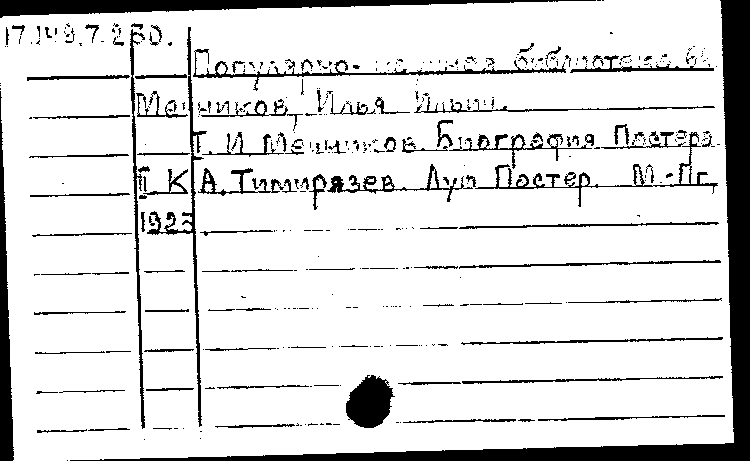 17.149.7.250.
Популярно-научная библиотека. 64
Мечников, Илья Ильич.
I. И. Мечников. Биография Пастера
II К А. Тимирязев. Луи Пастер. М.-Пг,
1923.